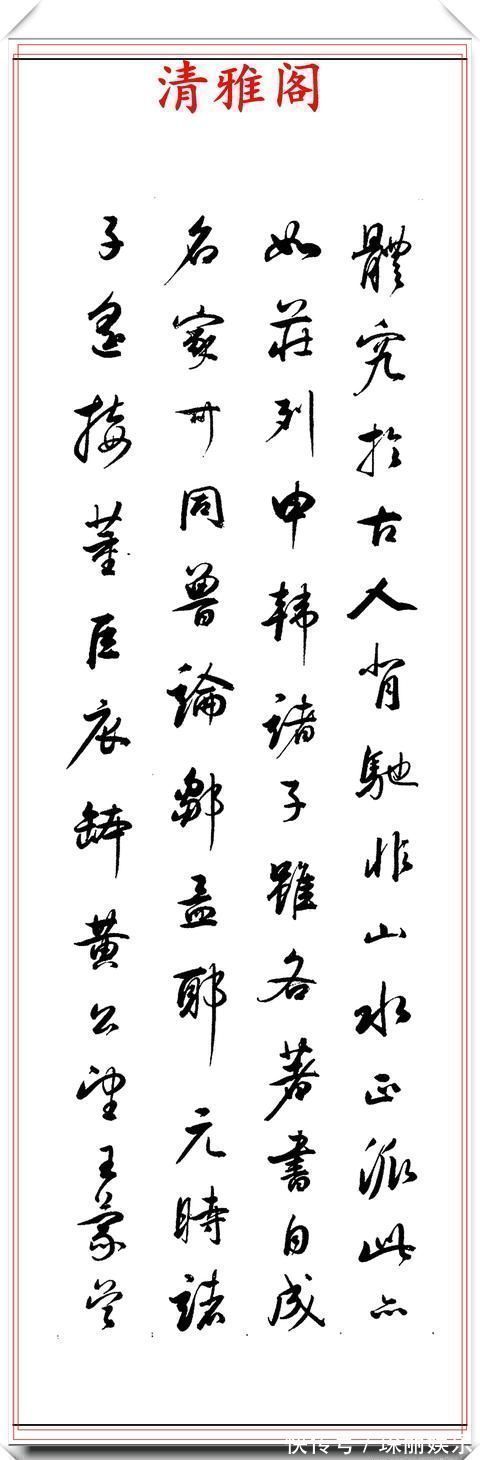 清雅阁
體究於古人背馳非山水正派此亦
如莊列申韩諸子雖各著書自成
名家可同魯論鄒孟耶元時諸
子遥接董巨衣缽黄公望王蒙皆
快传号／琳丽娱乐